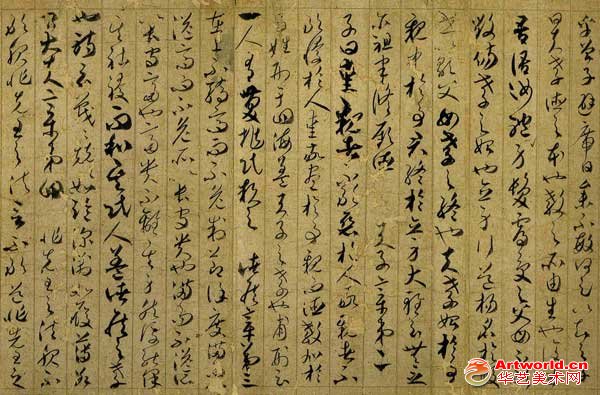 乎曾子避席曰參不敏何足以知之子
曰夫孝德之本也教之所由生也復坐
吾語汝身體髮膚受之父母不敢
毀傷孝之始也立身行道揚名於後世
以顯父母孝之終也夫孝始於事
親中於事君終於立身大雅云無念
爾祖聿脩厥德 天子章第二
子曰愛親者不敢惡於人敬親者不
敢慢於人愛敬盡於事親而德教加於
百姓刑于四海蓋天子之孝也甫刑云
一人有慶兆民賴之 諸侯章第三
在上不驕高而不危制節謹度滿而
不溢高而不危所以長守貴也滿而不溢所
以長守富也富貴不離其身然後能保
其社稷而和其民人蓋諸侯之孝
也詩云戰戰兢兢如臨深淵如履薄冰
卿大夫章第四 非先王之法服不
敢服非先王之法言不敢道非先王之
Artworld.cn
华艺美术网